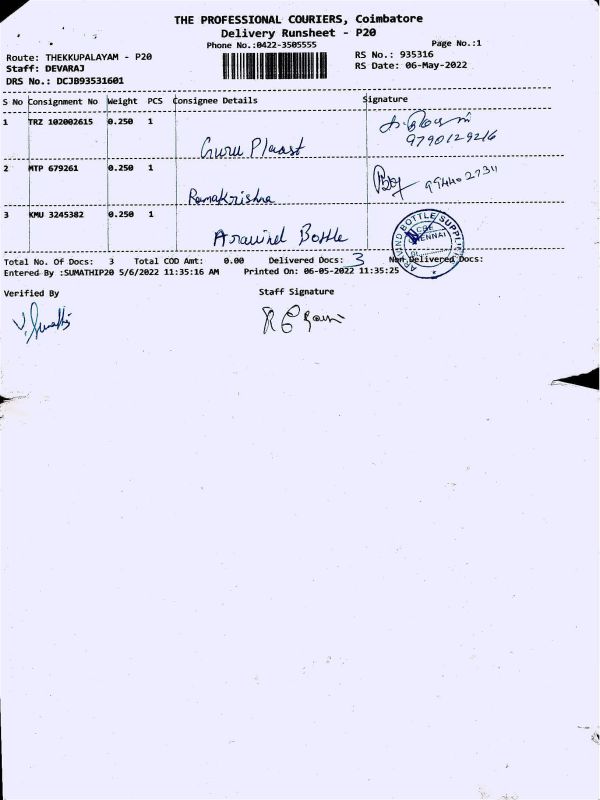 THE PROFESSIONAL COURIERS, Coimbatore
Delivery Runsheet - P20
Phone No.:0422-3505555
Page No.:1
Route: THEKKUPALAYAM - P20
RS No.: 935316
Staff: DEVARAJ
RS Date: 06-May-2022
DRS No.: DCJB93531601
S No Consignment No Weight PCS Consignee Details Signature
1 TRZ 102002615 0.250 1
9790129216
Guru Plaast
2 MTP 679261 0.250 1
Ramakrishna
3 KMU 3245382 0.250 1
Aravind Bottle
BOTTLE SUPPLI
CBE
Total No. Of Docs: 3 Total COD Amt: 0.00 Delivered Docs: 3 Non Delivered Docs:
Entered By :SUMATHIP20 5/6/2022 11:35:16 AM Printed On: 06-05-2022 11:35:25
Verified By Staff Signature